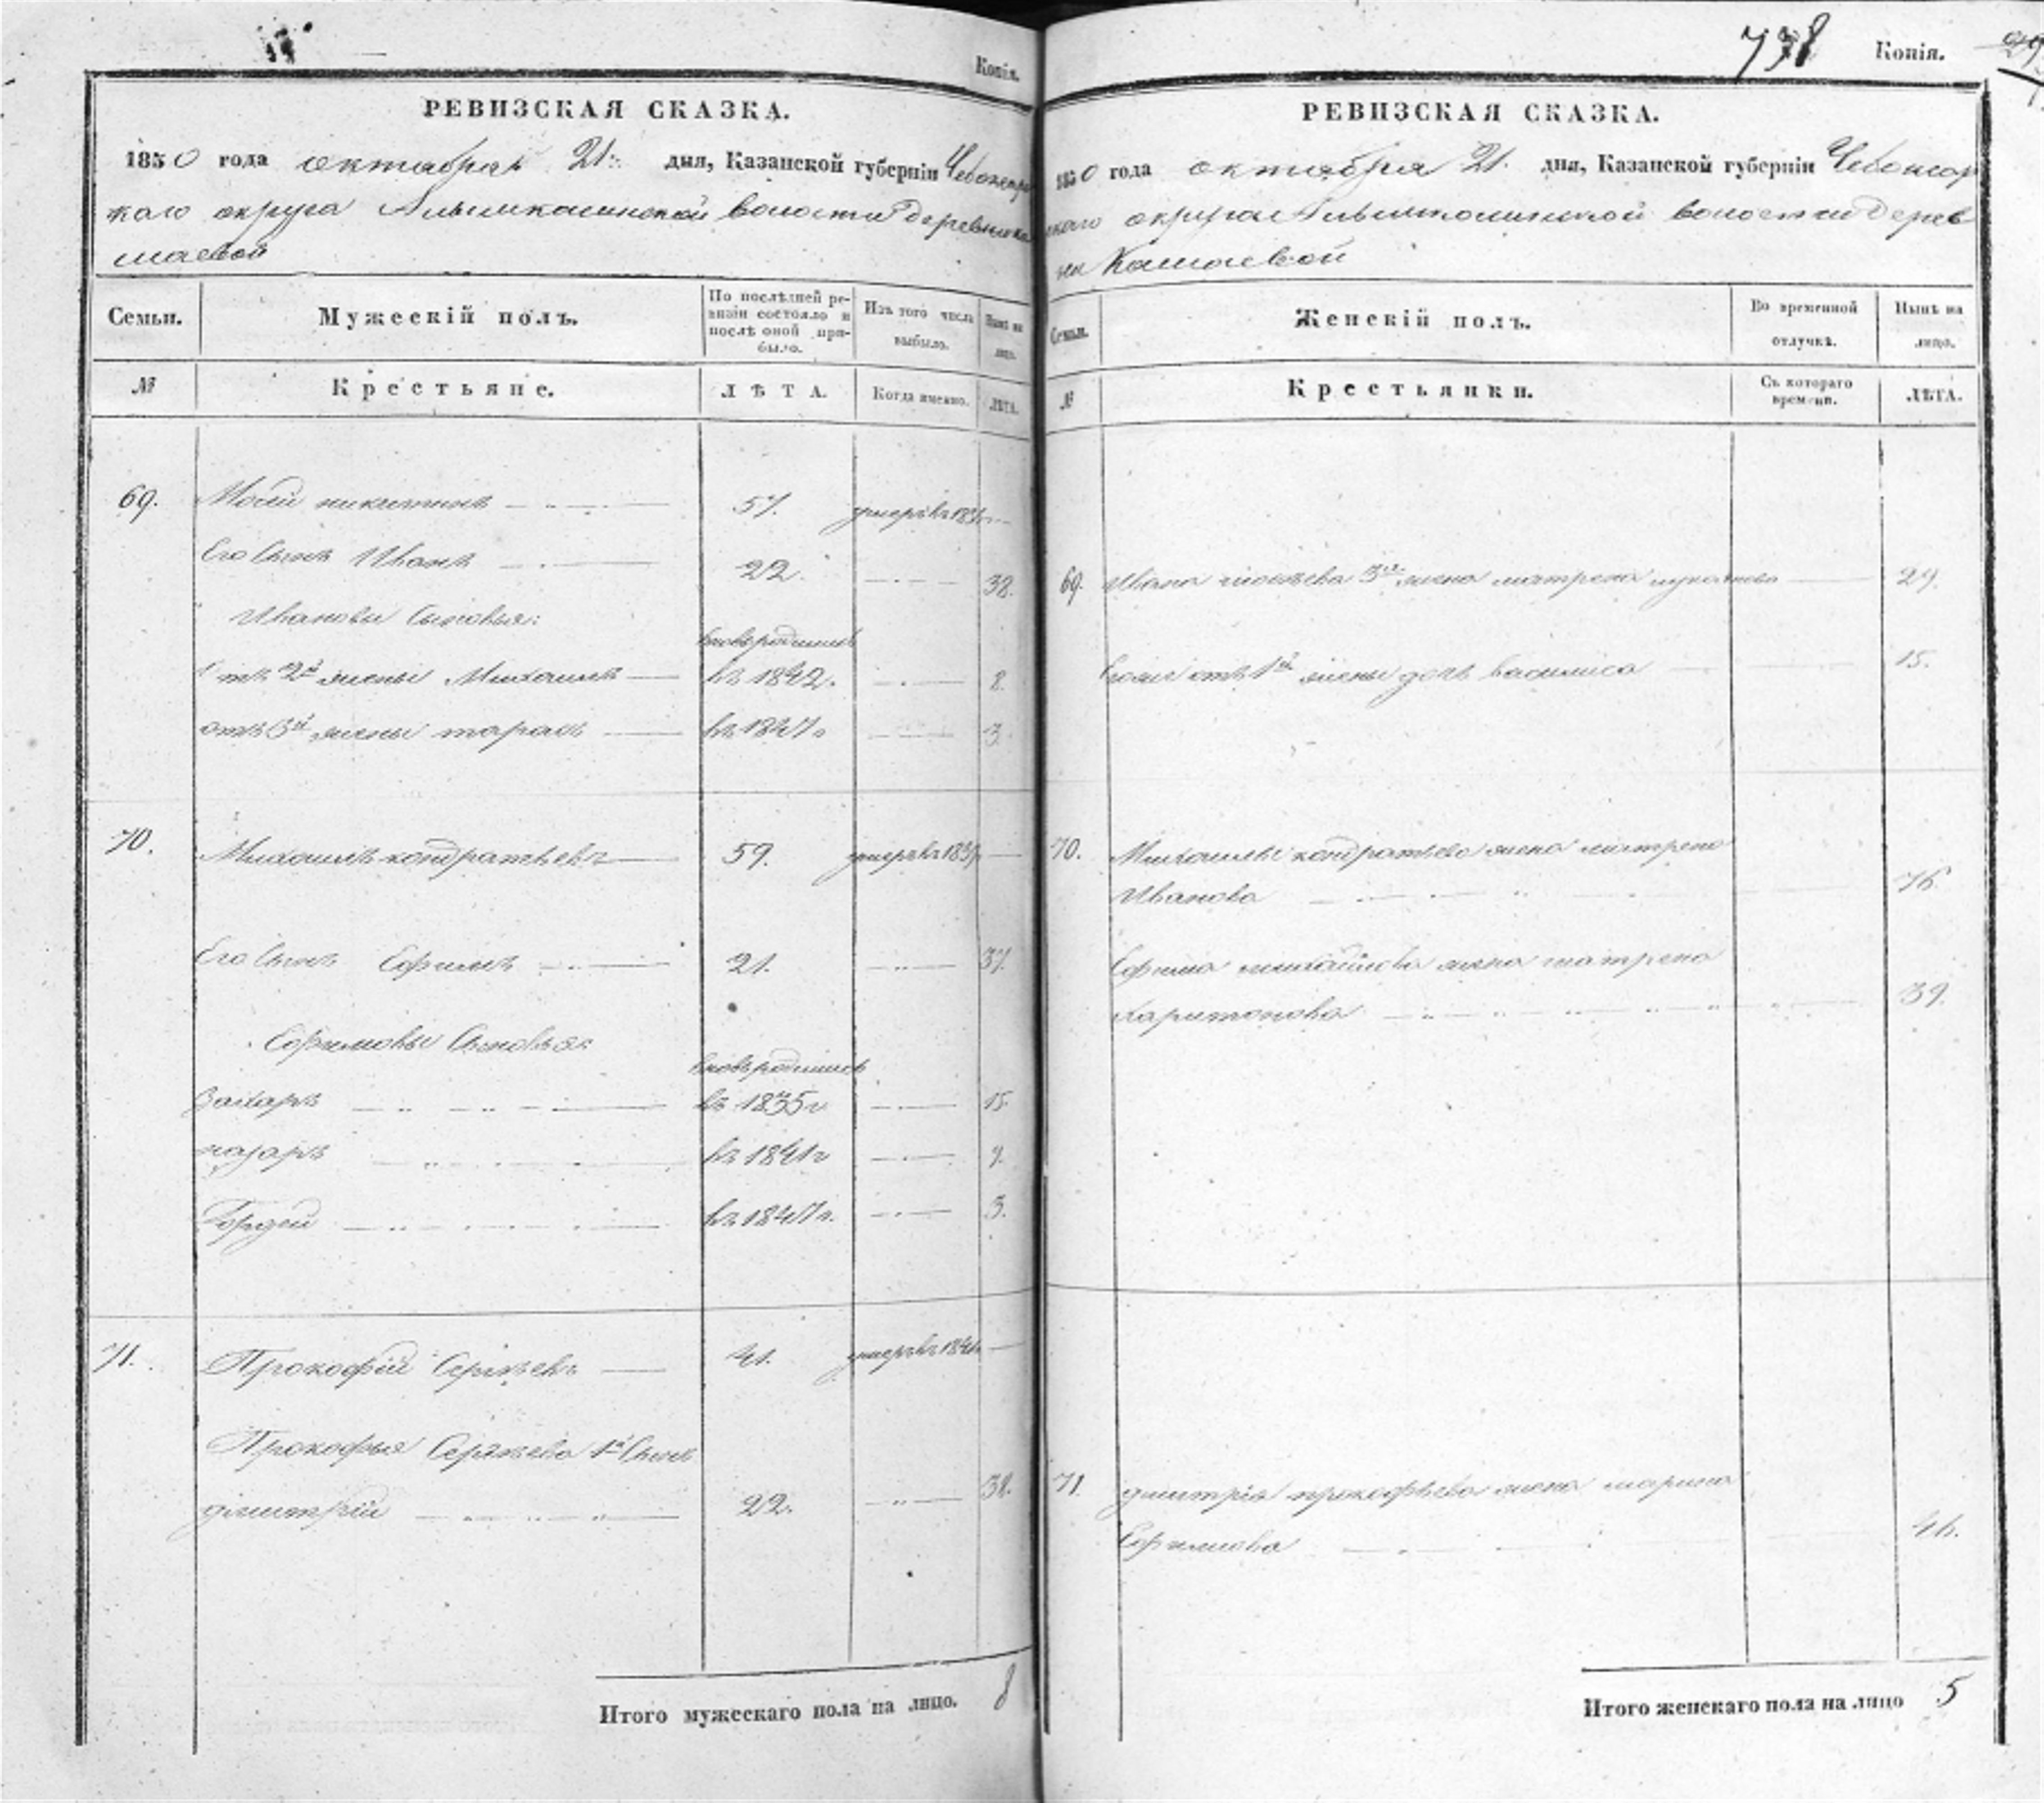 Копія.
РЕВИЗСКАЯ СКАЗКА.
1850 года октября 21. дня, Казанской губерніи Чебоксар
скаго округа волости деревни Ка
шаевой
Семьи. Мужескій полъ. По послѣдней ре-
визіи состояло и
послѣ оной при-
было. Изъ того числа
выбыло. Нынѣ на
лицо.
№ Крестьяне. ЛѢТА. Когда именно. ЛѢТА.
69. Мосей никитинъ 57. умеръ въ
Его Сынъ Иванъ 22. 38.
Ивановы Сыновья:
вновь родились
отъ 2й жены Михаилъ въ 1842. 8.
отъ 3й жены тарасъ въ 1847г 3.
70. Михаилъ кондратьевъ 59. умеръ въ 1837
Его Сынъ Ефимъ 21. 37.
Ефимовы Сыновья:
вновь родились
Захаръ въ 1835г 15.
назаръ въ 1841г 9.
Гордей въ 1847г. 3.
71. Прокофій Сергѣевъ 41. умеръ въ
Прокофья Сергѣева 1й Сынъ
димитрій 22. 38.
Итого мужескаго пола на лицо. 8
738 Копія.
РЕВИЗСКАЯ СКАЗКА.
1850 года октября 21. дня, Казанской губерніи Чебоксар
скаго округа волости дерев
ни Кашаевой
Семьи. Женскій полъ. Во временной
отлучкѣ. Нынѣ на
лицо.
№ Крестьянки. Съ котораго
времени. ЛѢТА.
69. Ивана мосеева 3я жена матрена 29.
отъ 1й жены дочь василиса 15.
70. Михаилы кондратьева жена матрена
Иванова 76.
Ефима михайлова жена матрена
харитонова 39.
71. димитрія прокофьева жена марина
Ефимова 46.
Итого женскаго пола на лицо 5